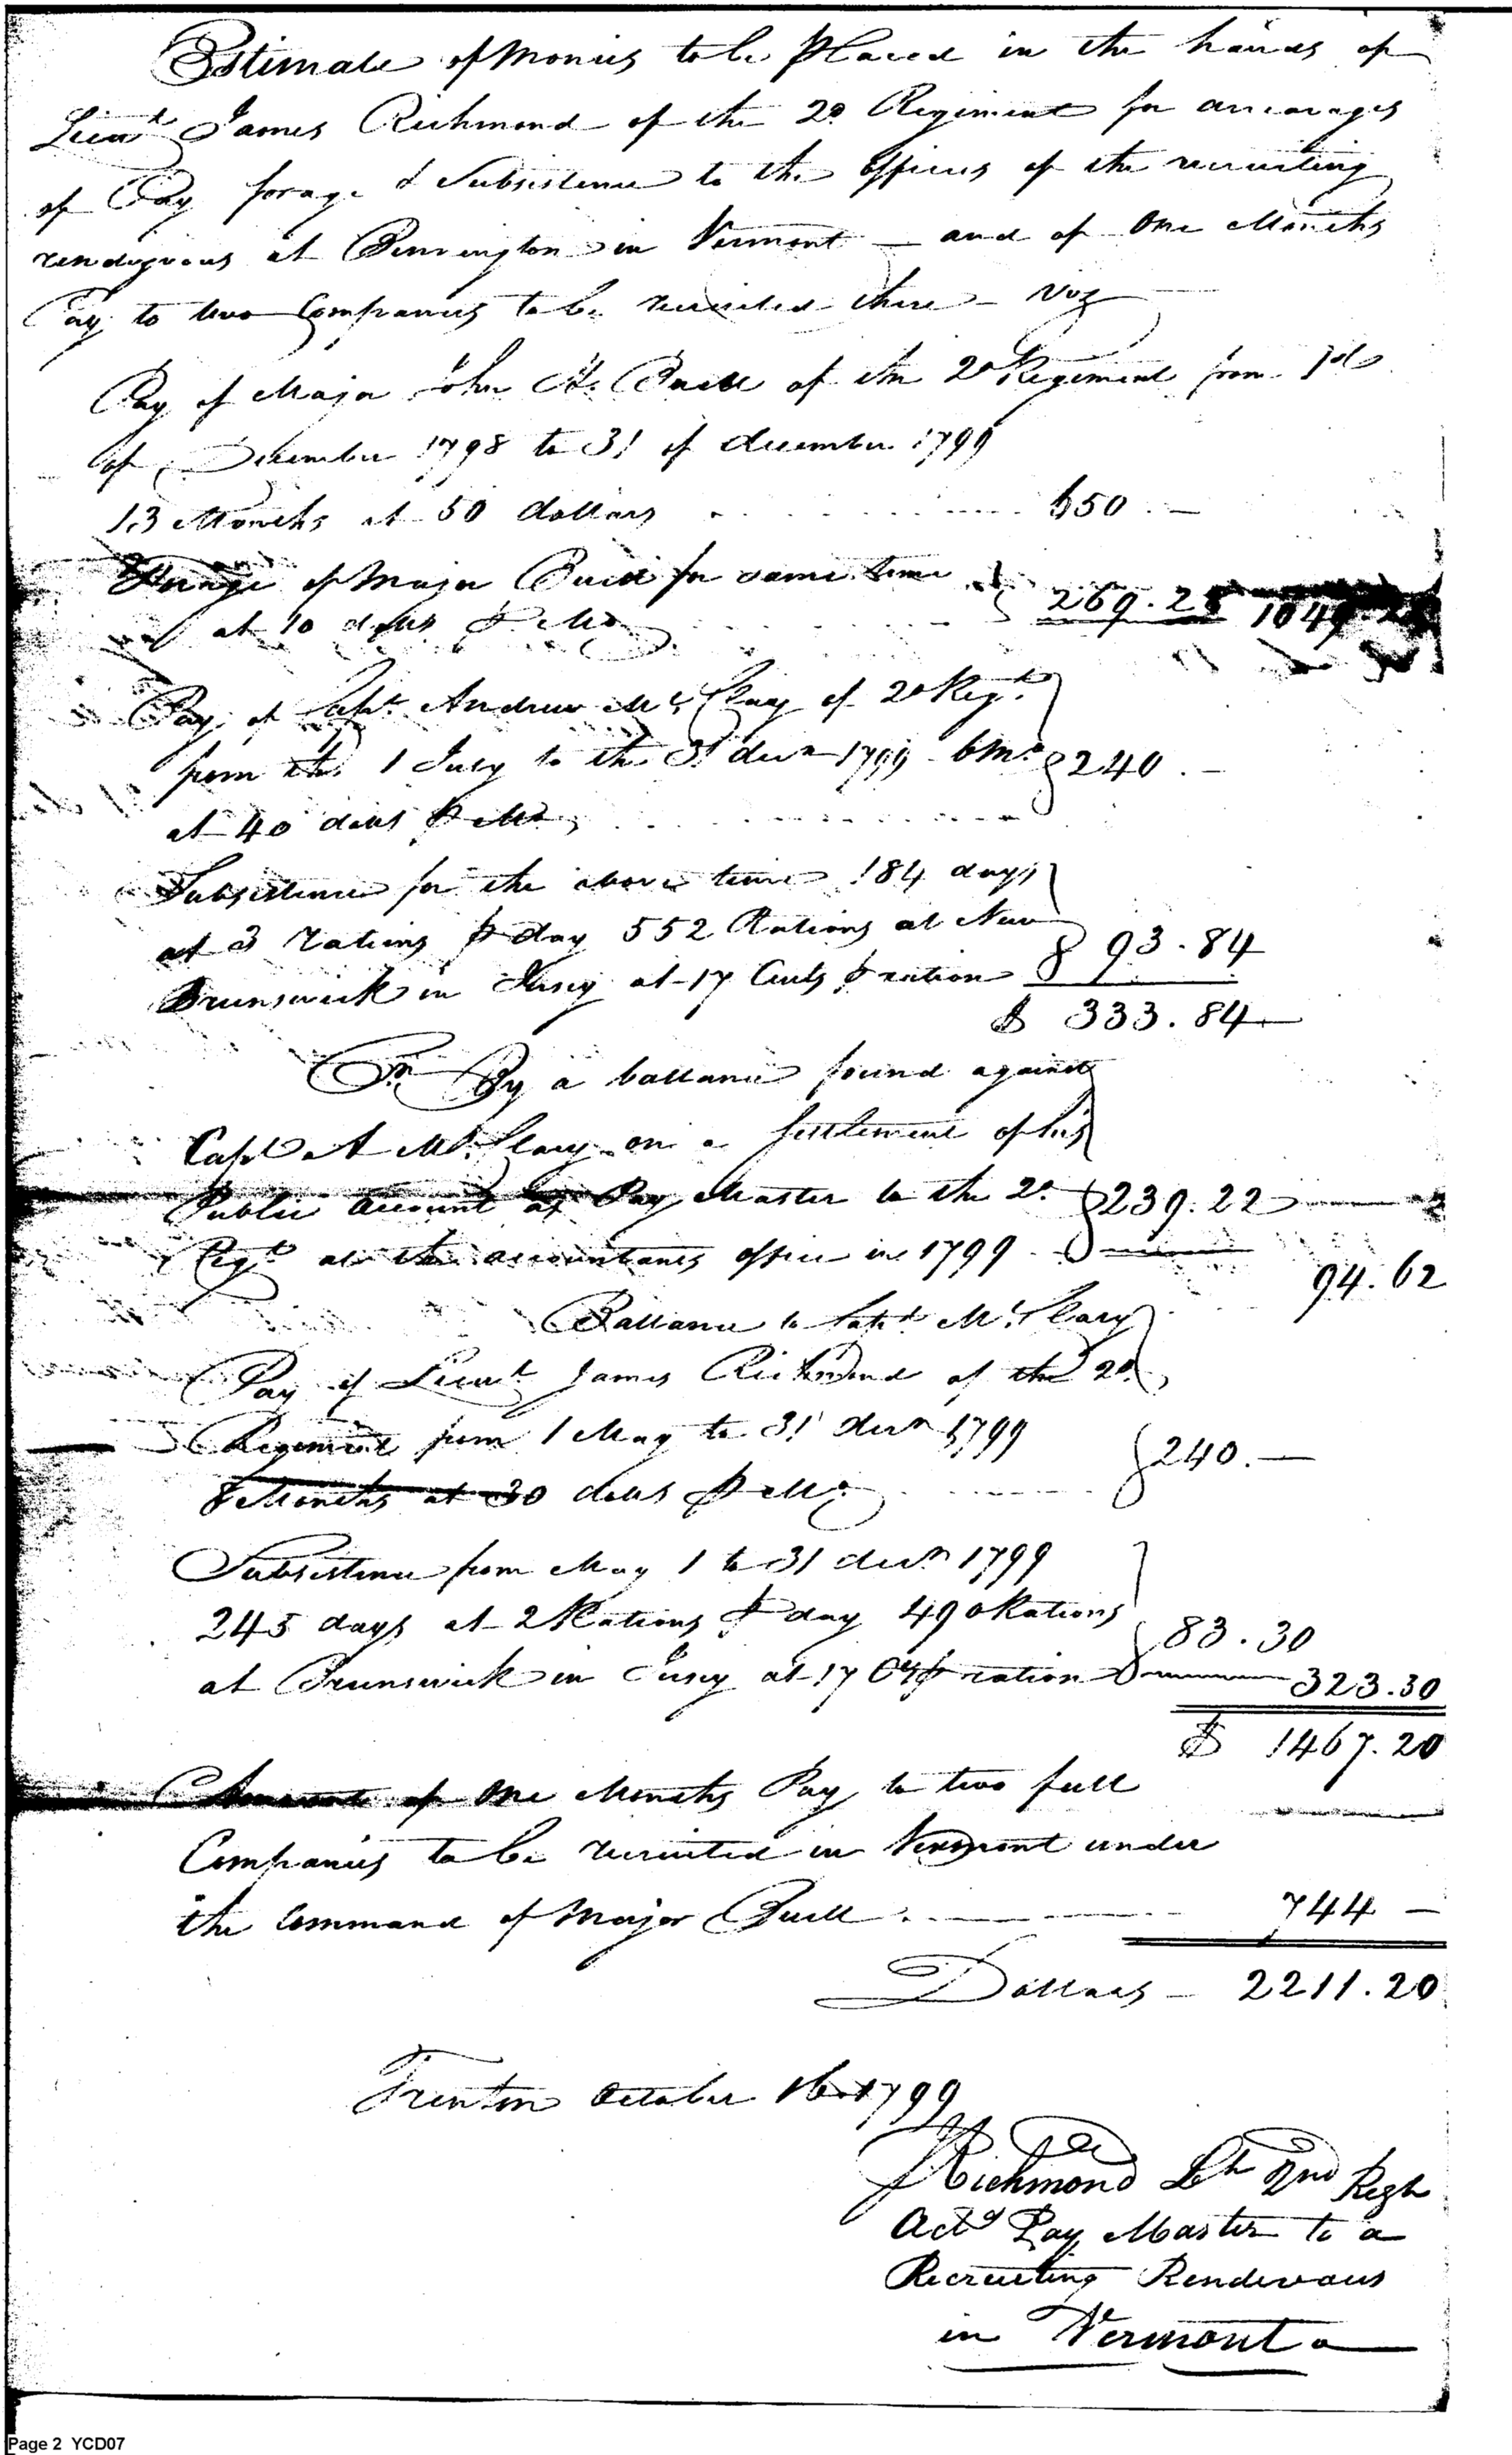 Estimate of Monies to be Placed in the hands of
Lieut James Richmond of the 2d Regiment for arrearages
of Pay forage & Subsistence to the officers of the recruiting
rendezvous at Bennington in Vermont — and of One Months
Pay to two Companies to be recruited there — Viz
Pay of Major John H. Buell of the 2d Regiment from 1st
of December 1798 to 31 of december 1799
13 Months at 50 dollars 650 . —
Forage of Major Buell for same time
at 10 dolls P Mo 269.28 1049.28
Pay of Capt Andrew McClary of 2d Regt
from the 1 July to the 31 decr 1799 - 6 Mos 240 . —
at 40 dolls P Mo
Subsistence for the above time 184 days
at 3 rations P day 552 Rations at New
Brunswick in Jersey at 17 Cents P ration 93.84
$ 333.84
By a ballance found against
Capt A McClary on a settlement of his
Public Account as Pay Master to the 2d 239.22
Regt at the accountants office in 1799
94.62
Ballance to Capt McClary
Pay of Lieut James Richmond of the 2d
Regiment from 1 May to 31 decr 1799 240. —
8 Months at 30 dolls P Mo
Subsistence from May 1 to 31 decr 1799
245 days at 2 Rations P day 490 Rations 83.30
at Brunswick in Jersey at 17 Cts P ration 323.30
$ 1467.20
Amount of One Months Pay to two full
Companies to be recruited in Vermont under
the Command of Major Buell 744 —
Dollars — 2211.20
Trenton October 16 1799
Richmond Lt 2nd Regt
Actg Pay Master to a
Recruiting Rendevous
in Vermont
Page 2 YCD07